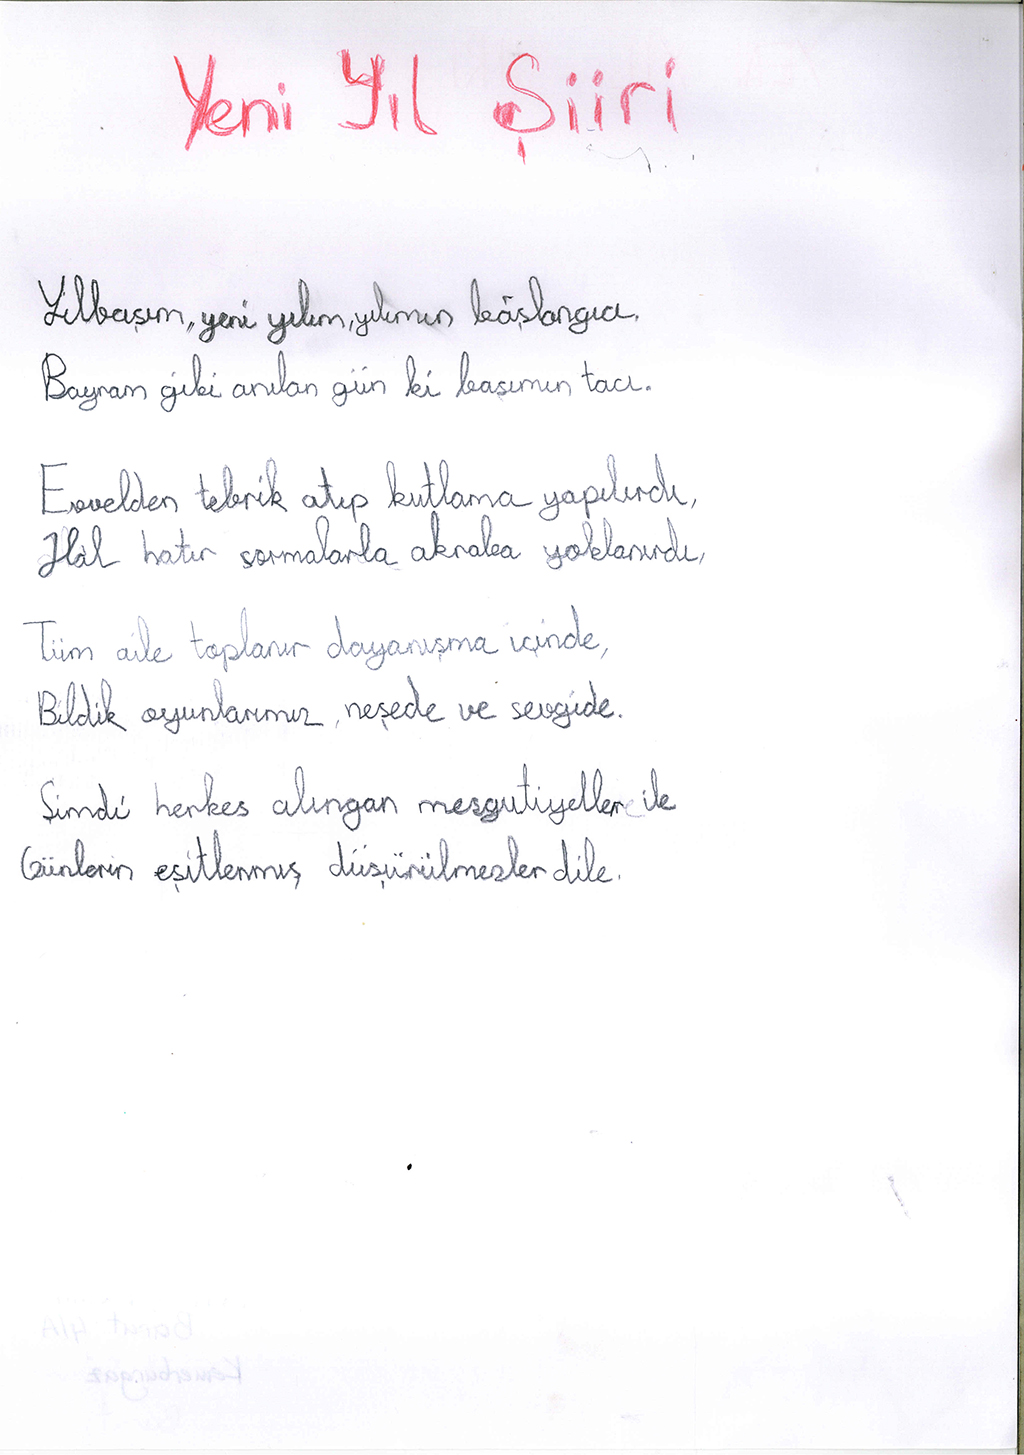 Yeni Yıl Şiiri
Yılbaşım, yeni yılım, yılımın bâşlangıcı.
Bayram gibi anılan gün ki başımın tacı.
Evvelden tebrik atıp kutlama yapılırdı,
Hâl hatır sormalarla akraba yoklanırdı,
Tüm aile toplanır dayanışma içinde,
Bildik oyunlarımız, neşede ve sevgide.
Şimdi herkes alıngan mesgutiyeller ile
Günlerin eşitlenmiş düşürülmezler dile.
Barut 4/A
Kemerburgaz